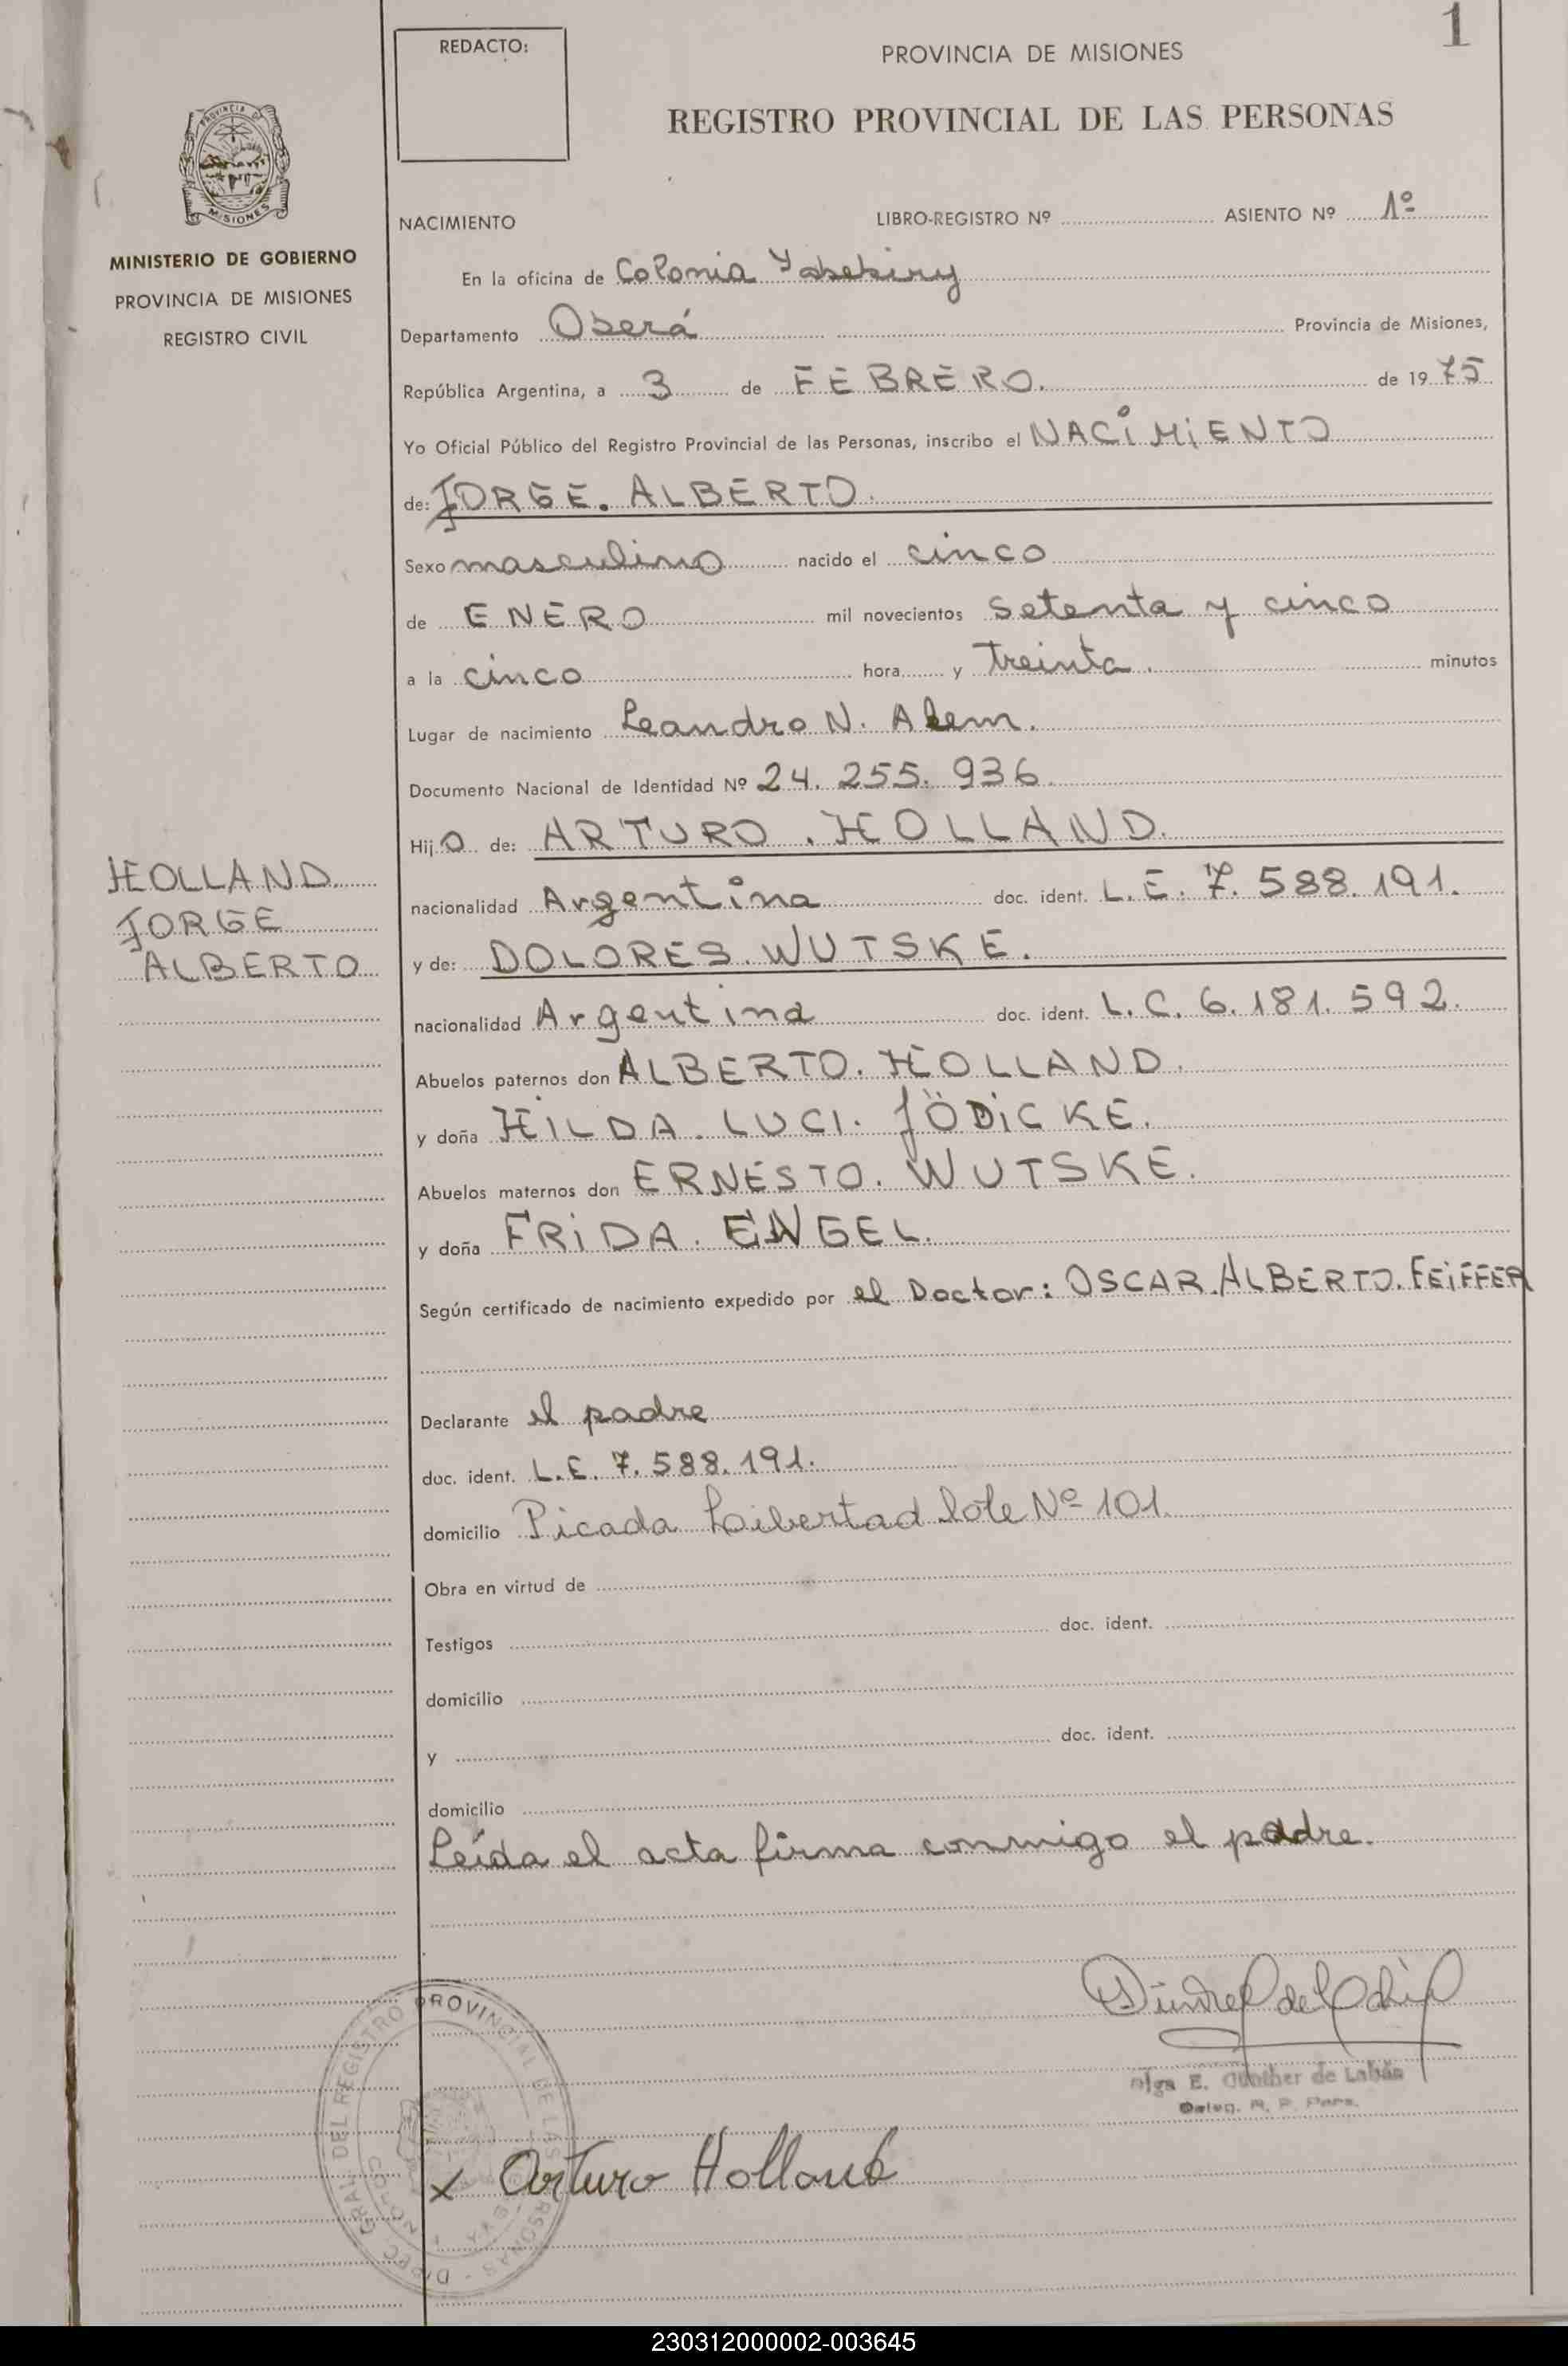 1
REDACTO:
PROVINCIA DE MISIONES
REGISTRO PROVINCIAL DE LAS PERSONAS
PROVINCIA DE
MISIONES
MINISTERIO DE GOBIERNO
PROVINCIA DE MISIONES
REGISTRO CIVIL
NACIMIENTO LIBRO-REGISTRO Nº ASIENTO Nº 1º
En la oficina de Colonia Yabebiry
Departamento Oberá Provincia de Misiones,
República Argentina, a 3 de FEBRERO. de 1975
Yo Oficial Público del Registro Provincial de las Personas, inscribo el NACIMIENTO
de: JORGE. ALBERTO.
Sexo masculino nacido el cinco
de ENERO mil novecientos setenta y cinco
a la cinco hora y treinta. minutos
Lugar de nacimiento Leandro N. Alem.
Documento Nacional de Identidad Nº 24. 255. 936.
Hijo de: ARTURO. HOLLAND.
HOLLAND
JORGE
ALBERTO
nacionalidad Argentina doc. ident. L.E. 7. 588. 191.
y de: DOLORES. WUTSKE.
nacionalidad Argentina doc. ident. L. C. 6. 181. 592.
Abuelos paternos don ALBERTO. HOLLAND.
y doña HILDA. LUCI. JÖDICKE.
Abuelos maternos don ERNESTO. WUTSKE.
y doña FRIDA. ENGEL.
Según certificado de nacimiento expedido por el Doctor: OSCAR. ALBERTO. FEIFFER
Declarante el padre
doc. ident. L.E. 7. 588. 191.
domicilio Picada Libertad lote Nº 101.
Obra en virtud de
Testigos doc. ident.
domicilio
y doc. ident.
domicilio
Leída el acta firma conmigo el padre.
Olga E. Günther de Labás
Deleg. R. P. Pers.
DIREC. GRAL. DEL REGISTRO PROVINCIAL DE LAS PERSONAS
x Arturo Holland
230312000002-003645